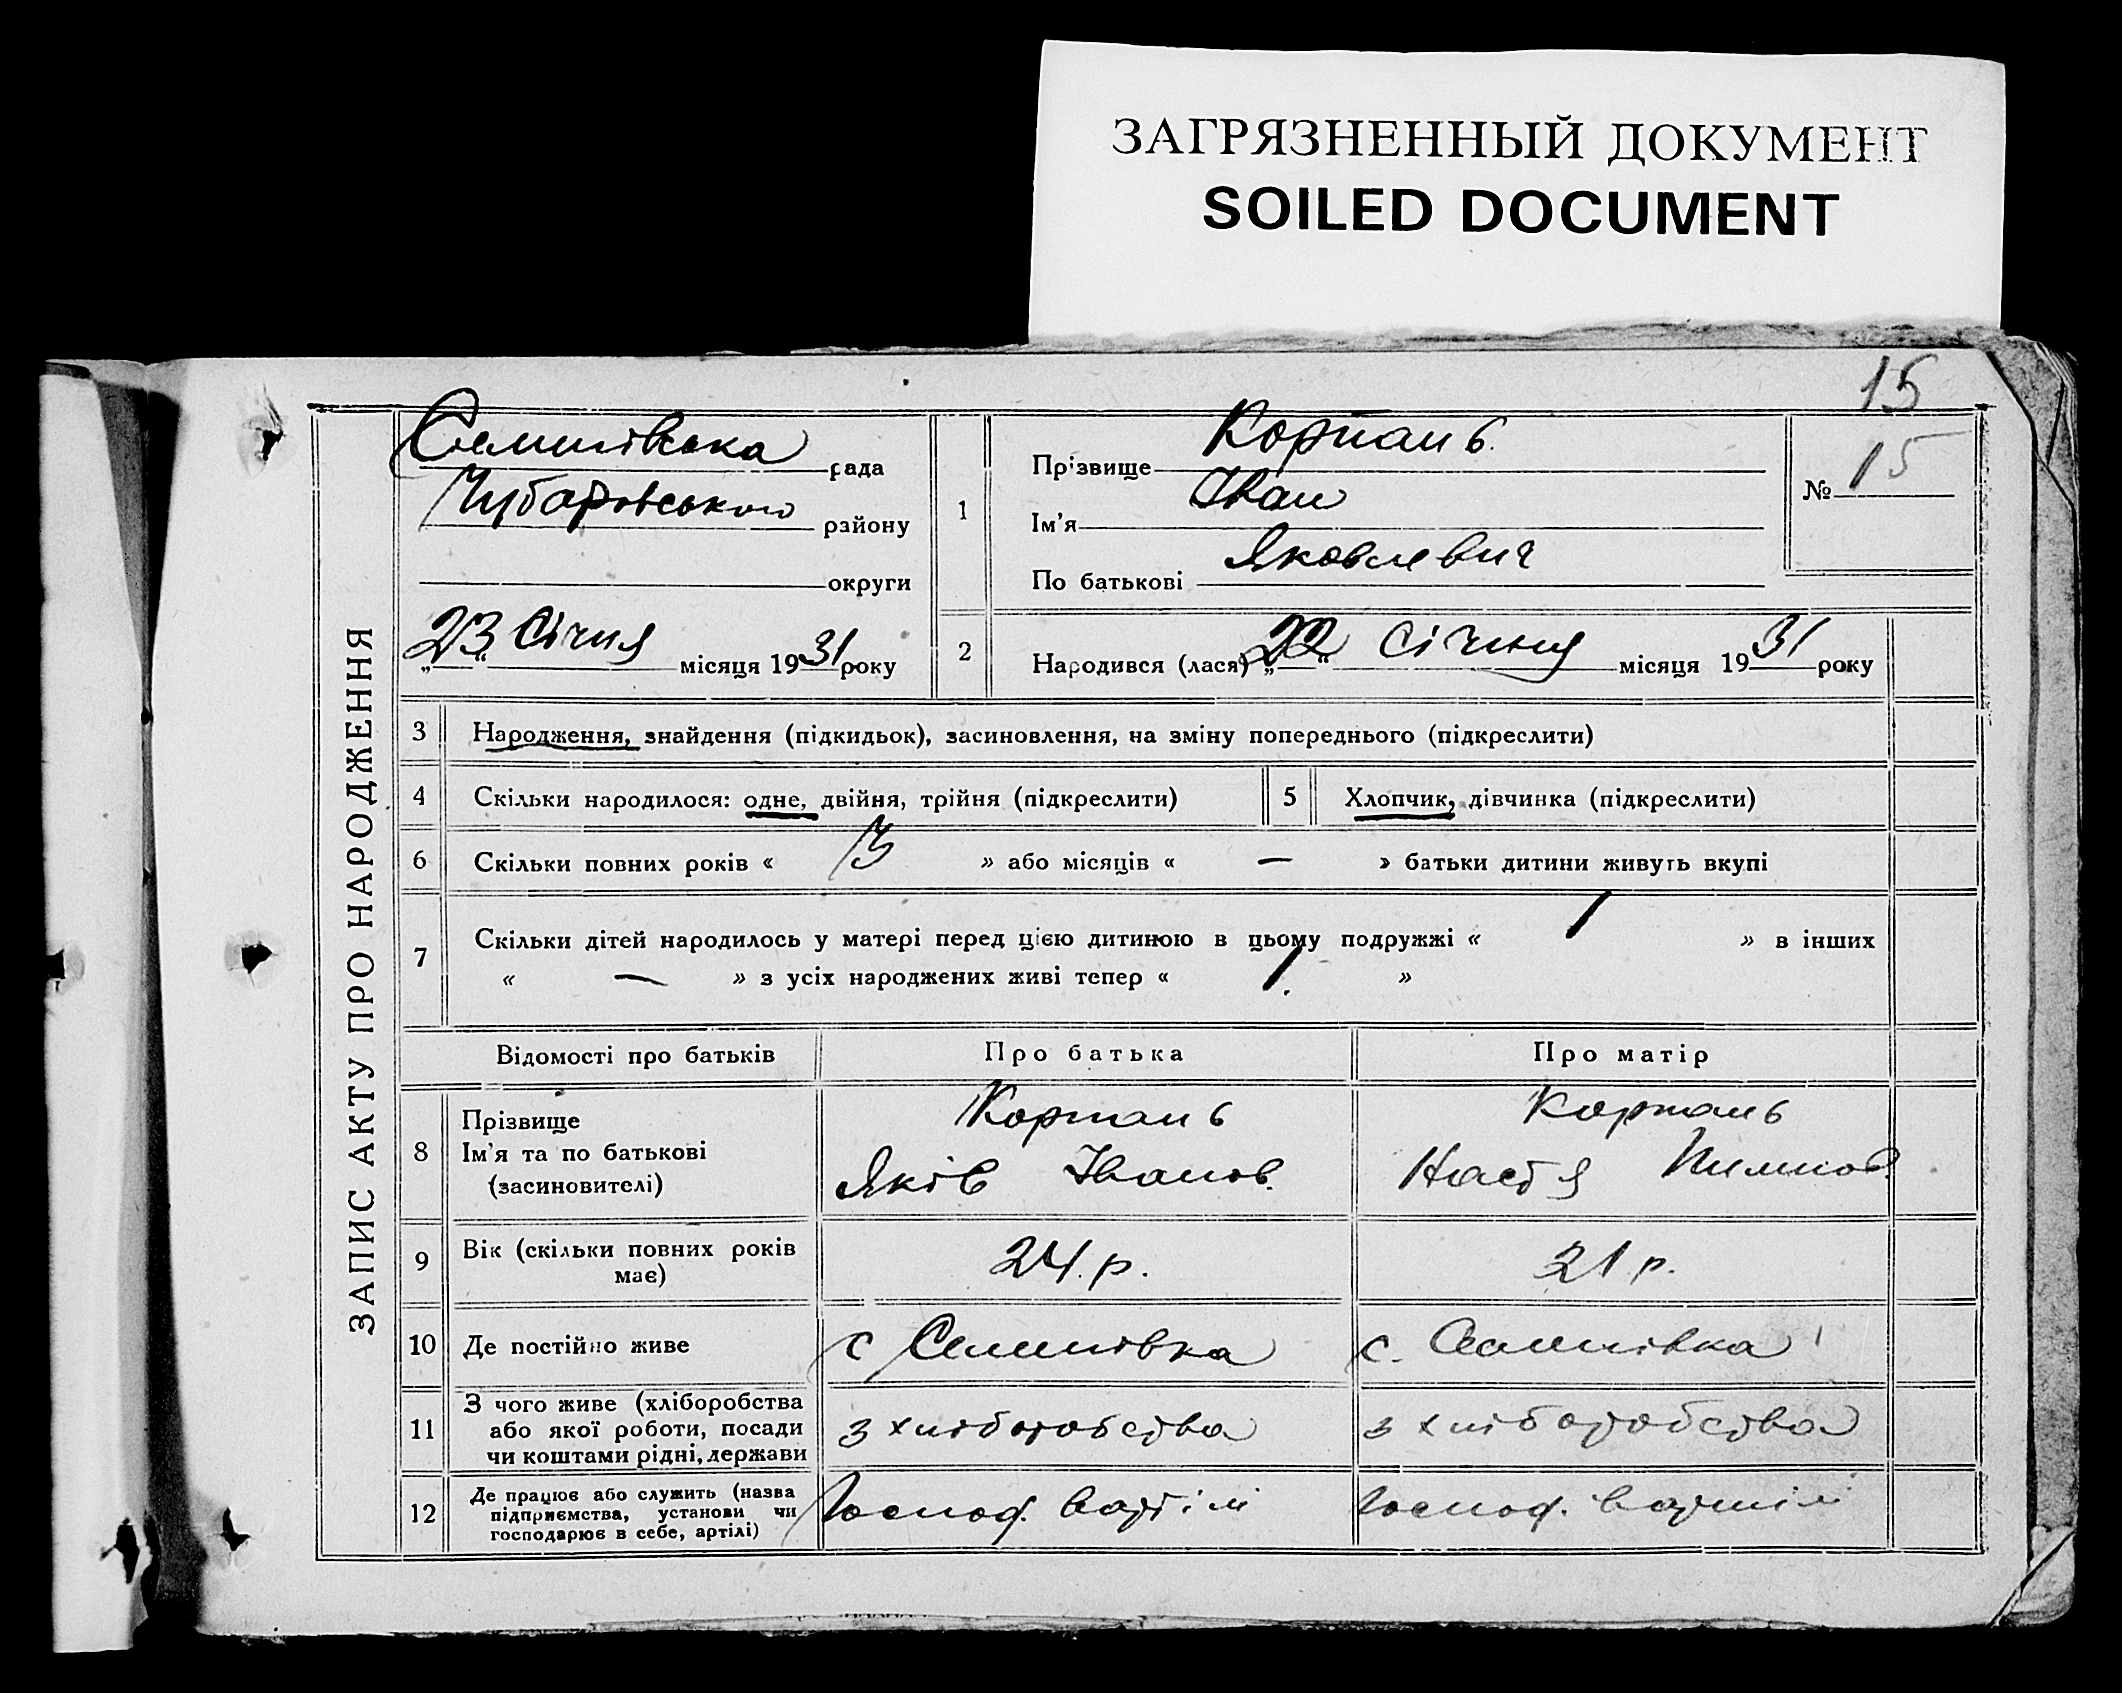 ЗАГРЯЗНЕННЫЙ ДОКУМЕНТ
SOILED DOCUMENT
15
ЗАПИС АКТУ ПРО НАРОДЖЕННЯ
рада
Чубарівського району
округи
„23“ Січня місяця 1931 року
1
Прізвище Корпань
Ім'я Іван
По батькові Яковлевич
№ 15
2
Народився (лася) „22“ Січння місяця 1931 року
3 Народження, знайдення (підкидьок), засиновлення, на зміну попереднього (підкреслити)
4 Скільки народилося: одне, двійня, трійня (підкреслити) 5 Хлопчик, дівчинка (підкреслити)
6 Скільки повних років « 3 » або місяців « — » батьки дитини живуть вкупі
7 Скільки дітей народилось у матері перед цією дитиною в цьому подружжі « 1 » в інших
« — » з усіх народжених живі тепер « 1. »
Відомості про батьків Про батька Про матір
8 Прізвище Корпань Корпань
Ім'я та по батькові Яків Іванов. Настя
(засиновителі)
9 Вік (скільки повних років має) 24.р. 21 р.
10 Де постійно живе с с.
11 З чого живе (хліборобства або якої роботи, посади чи коштами рідні, держави з хліборобства з хліборобства
12 Де працює або служить (назва підприємства, установи чи господарює в себе, артілі) Господ. в артілі Господ. в артілі